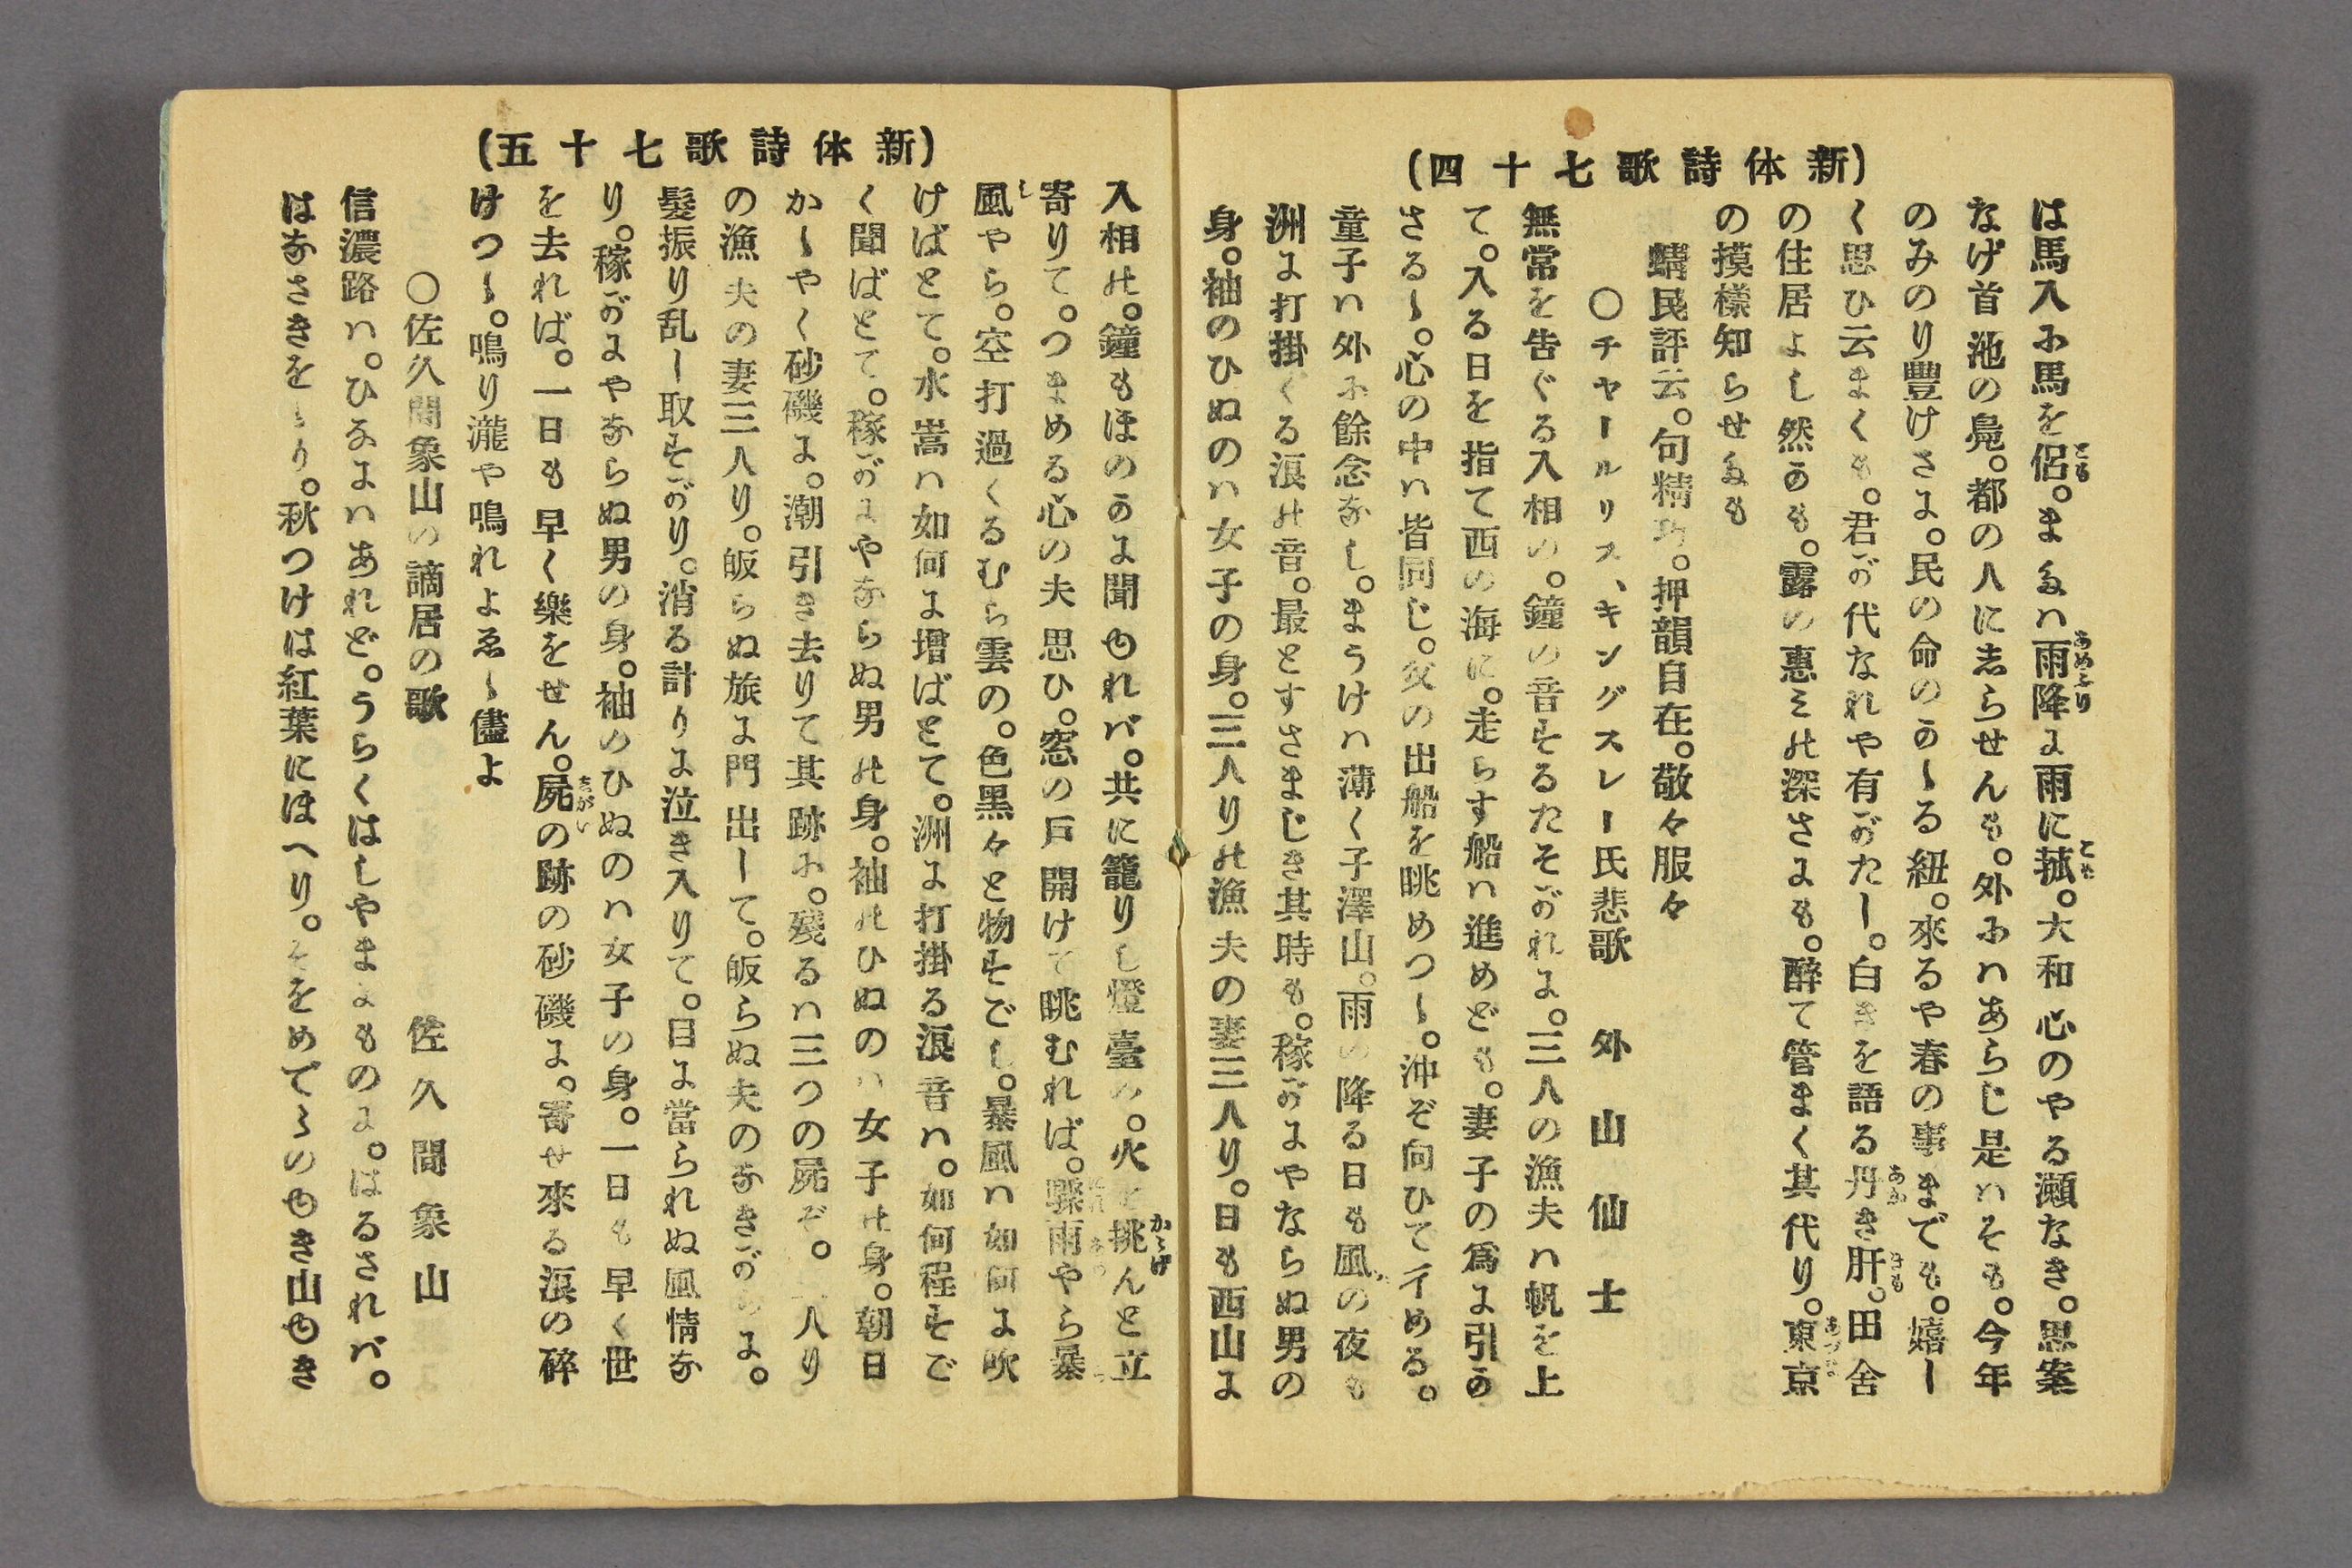 (新体詩歌七十四)
は馬入に馬を侶。または雨降に雨に菰。大和心のやる瀬なき。思案
なげ首池の鳧。都の人に志らせんも。外にハあらじ是ハそも。今年
のみのり豊けさに。民の命のかゝる紐。來るや春の事までも。嬉し
く思ひ云まくも。君が代なれや有がたし。白きを語る丹き肝。田舎
の住居よし然かも。露の惠ミの深さにも。醉て管まく其代り。東京
の摸樣知らせたも
蠨民評云。句精巧。押韻自在。敬々服々
〇チヤールリス、キングスレー氏悲歌 外山仙士
無常を告ぐる入相の。鐘の音するたそがれに。三人の漁夫ハ帆を上
て。入る日を指て西の海に。走らす船ハ進めども。妻子の爲に引か
さるゝ。心の中ハ皆同じ。父の出船を眺めつゝ。沖ぞ向ひて彳める。
童子ハ外に餘念なし。まうけハ薄く子澤山。雨の降る日も風の夜も
洲に打掛くる浪の音。最とすさまじき其時も。稼がにやならぬ男の
身。袖のひぬのハ女子の身。三人りの漁夫の妻三人り。日も西山に
(新体詩歌七十五)
入相の。鐘もほのかに聞ゆれバ。共に籠りし燈臺の。火を挑んと立
寄りて。つまめる心の夫思ひ。窓の戸開けて眺むれば。驟雨やら暴
風やら。空打過くるむら雲の。色黒々と物すごし。暴風ハ如何に吹
けばとて。水嵩ハ如何に増ばとて。洲に打掛る浪音ハ。如何程すご
く聞ばとて。稼がにやならぬ男の身。袖のひぬのハ女子の身。朝日
かゝやく砂磯に。潮引き去りて其跡に。殘るハ三つの屍ぞ。三人り
の漁夫の妻三人り。皈らぬ旅に門出して。皈らぬ夫のなきがらに。
髮振り乱し取すがり。消る計りに泣き入りて。目に當られぬ風情な
り。稼がにやならぬ男の身。袖のひぬのハ女子の身。一日も早く世
を去れば。一日も早く樂をせん。屍の跡の砂磯に。寄せ來る浪の碎
けつゝ。鳴り瀧や鳴れよゑゝ儘よ
〇佐久間象山の謫居の歌 佐久間象山
信濃路ハ。ひなにハあれど。うらくはしやまにものに。はるされバ。
はなさきをゝり。秋つけは紅葉にほへり。そをめでゝのゆき山ゆき